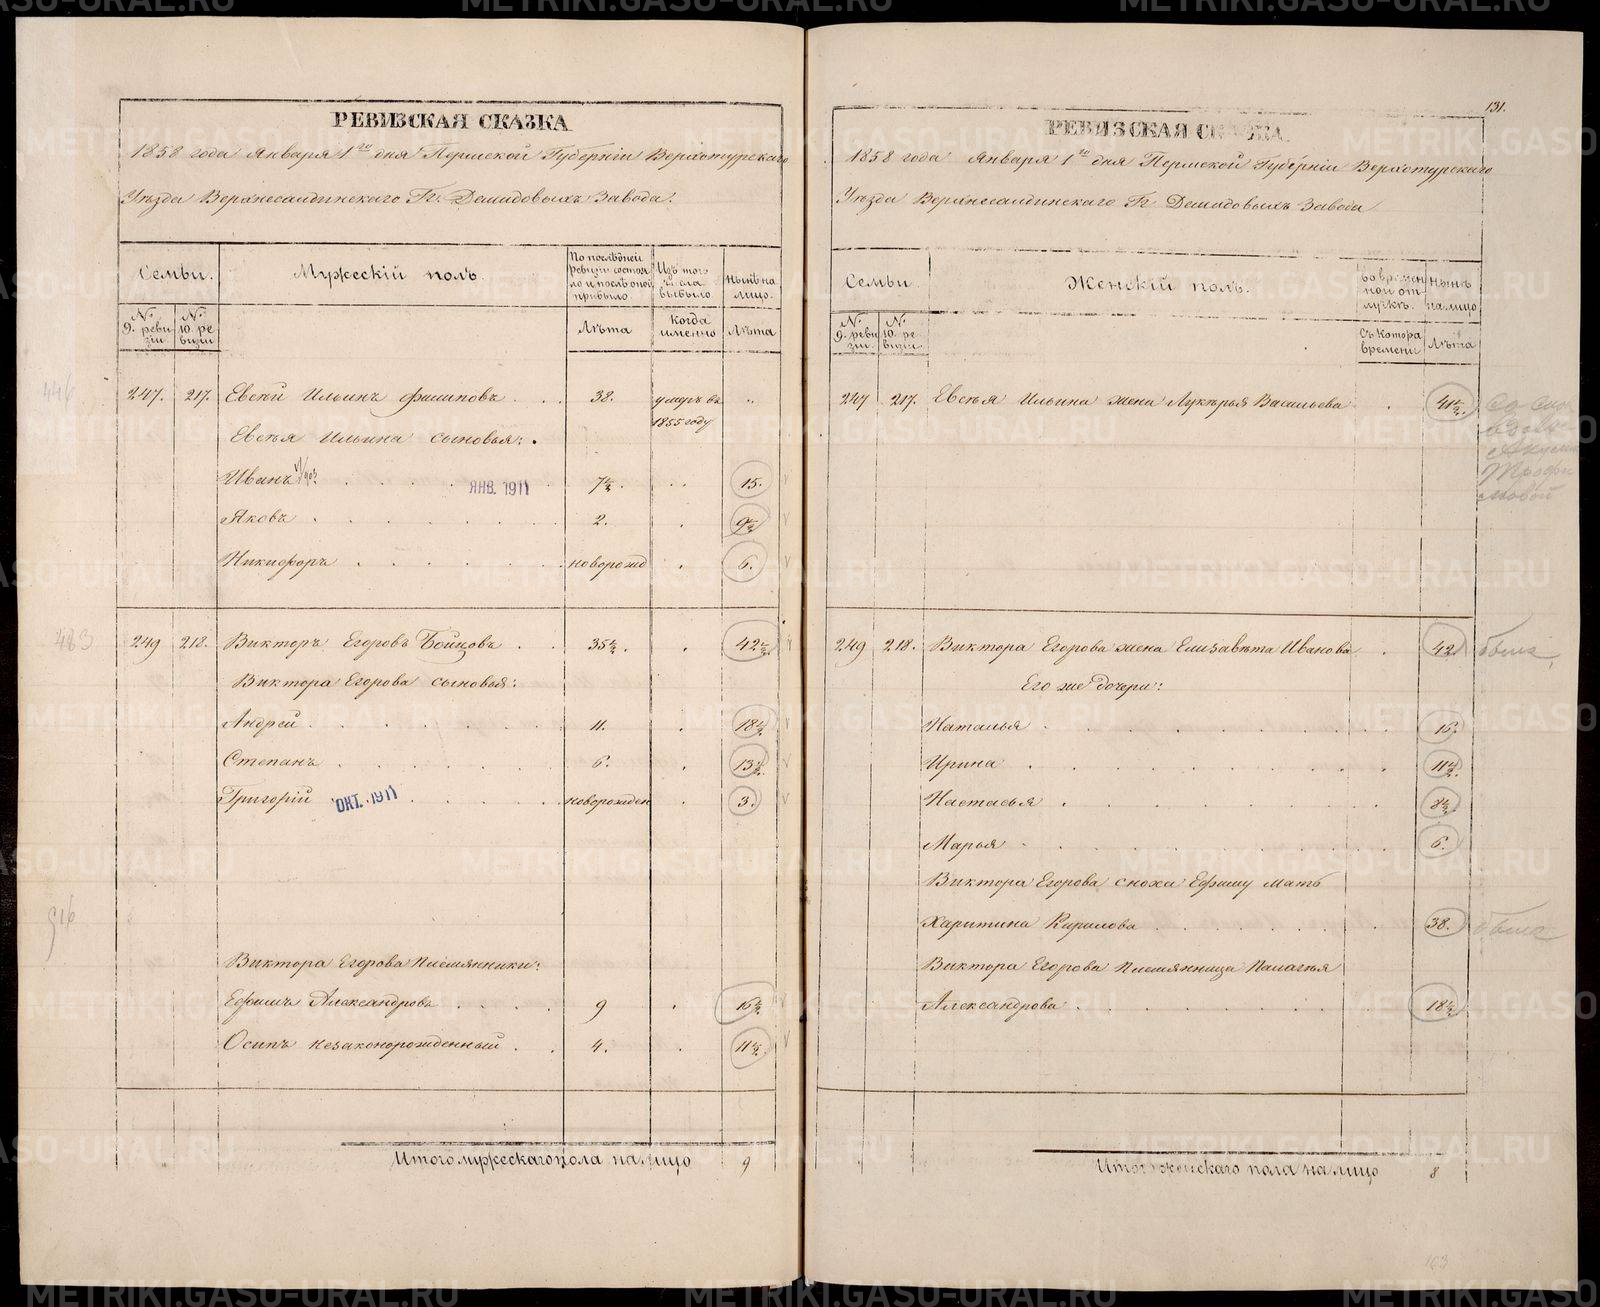 РЕВИЗСКАЯ СКАЗКА
1858 года Января 1го дня Пермской Губерніи Верхотурскаго
Уѣзда Верхнесалдинскаго Гг. Демидовыхъ Завода.
Семьи.
Мужескій полъ.
По послѣдней ревизіи состояло и послѣ оной прибыло.
Изъ того числа выбыло.
Нынѣ на лицо.
№ 9. ревизіи
№ 10. ревизіи
Лѣта
Когда именно
Лѣта
446
247. 217. Евсѣй Ильинъ Филиповъ . . . 38. умеръ въ 1855 году "
Евсѣя Ильина сыновья:
Иванъ ЯНВ. 1911 7½. 15.
Яковъ 2. 9½
Никифоръ новорожд 6.
463
249 218. Викторъ Егоровъ Бойцовъ 35½. 42½.
Виктора Егорова сыновья:
Андрей 11. 18½.
Степанъ 6. 13½.
Григорій ОКТ. 1911 новорожден 3.
916
Виктора Егорова племянники:
Ефимъ Александровъ 9 16½
Осипъ незаконорожденный 4. 11½.
Итого мужескаго пола на лицо 9
131.
РЕВИЗСКАЯ СКАЗКА
1858 года Января 1го дня Пермской Губерніи Верхотурскаго
Уѣзда Верхнесалдинскаго Гг Демидовыхъ Завода
Семьи
Женскій полъ.
Во временной отлучкѣ.
Нынѣ на лицо
№ 9. ревизіи.
№ 10. ревизіи
Съ котора времени
Лѣта
247 217. Евсѣя Ильина жена Лукѣрья Васильева 41½.
249 218. Виктора Егорова жена Елизавѣта Иванова 42.
Его же дочери:
Наталья 16.
Ирина 11½.
Настасья 8½
Марья 6.
Виктора Егорова сноха Ефиму мать
Харитина Кирилова 38.
Виктора Егорова племянница Палагѣя
Александрова 18½
Итого женскаго пола на лицо 8
163
METRIKI.GASO-URAL.RU